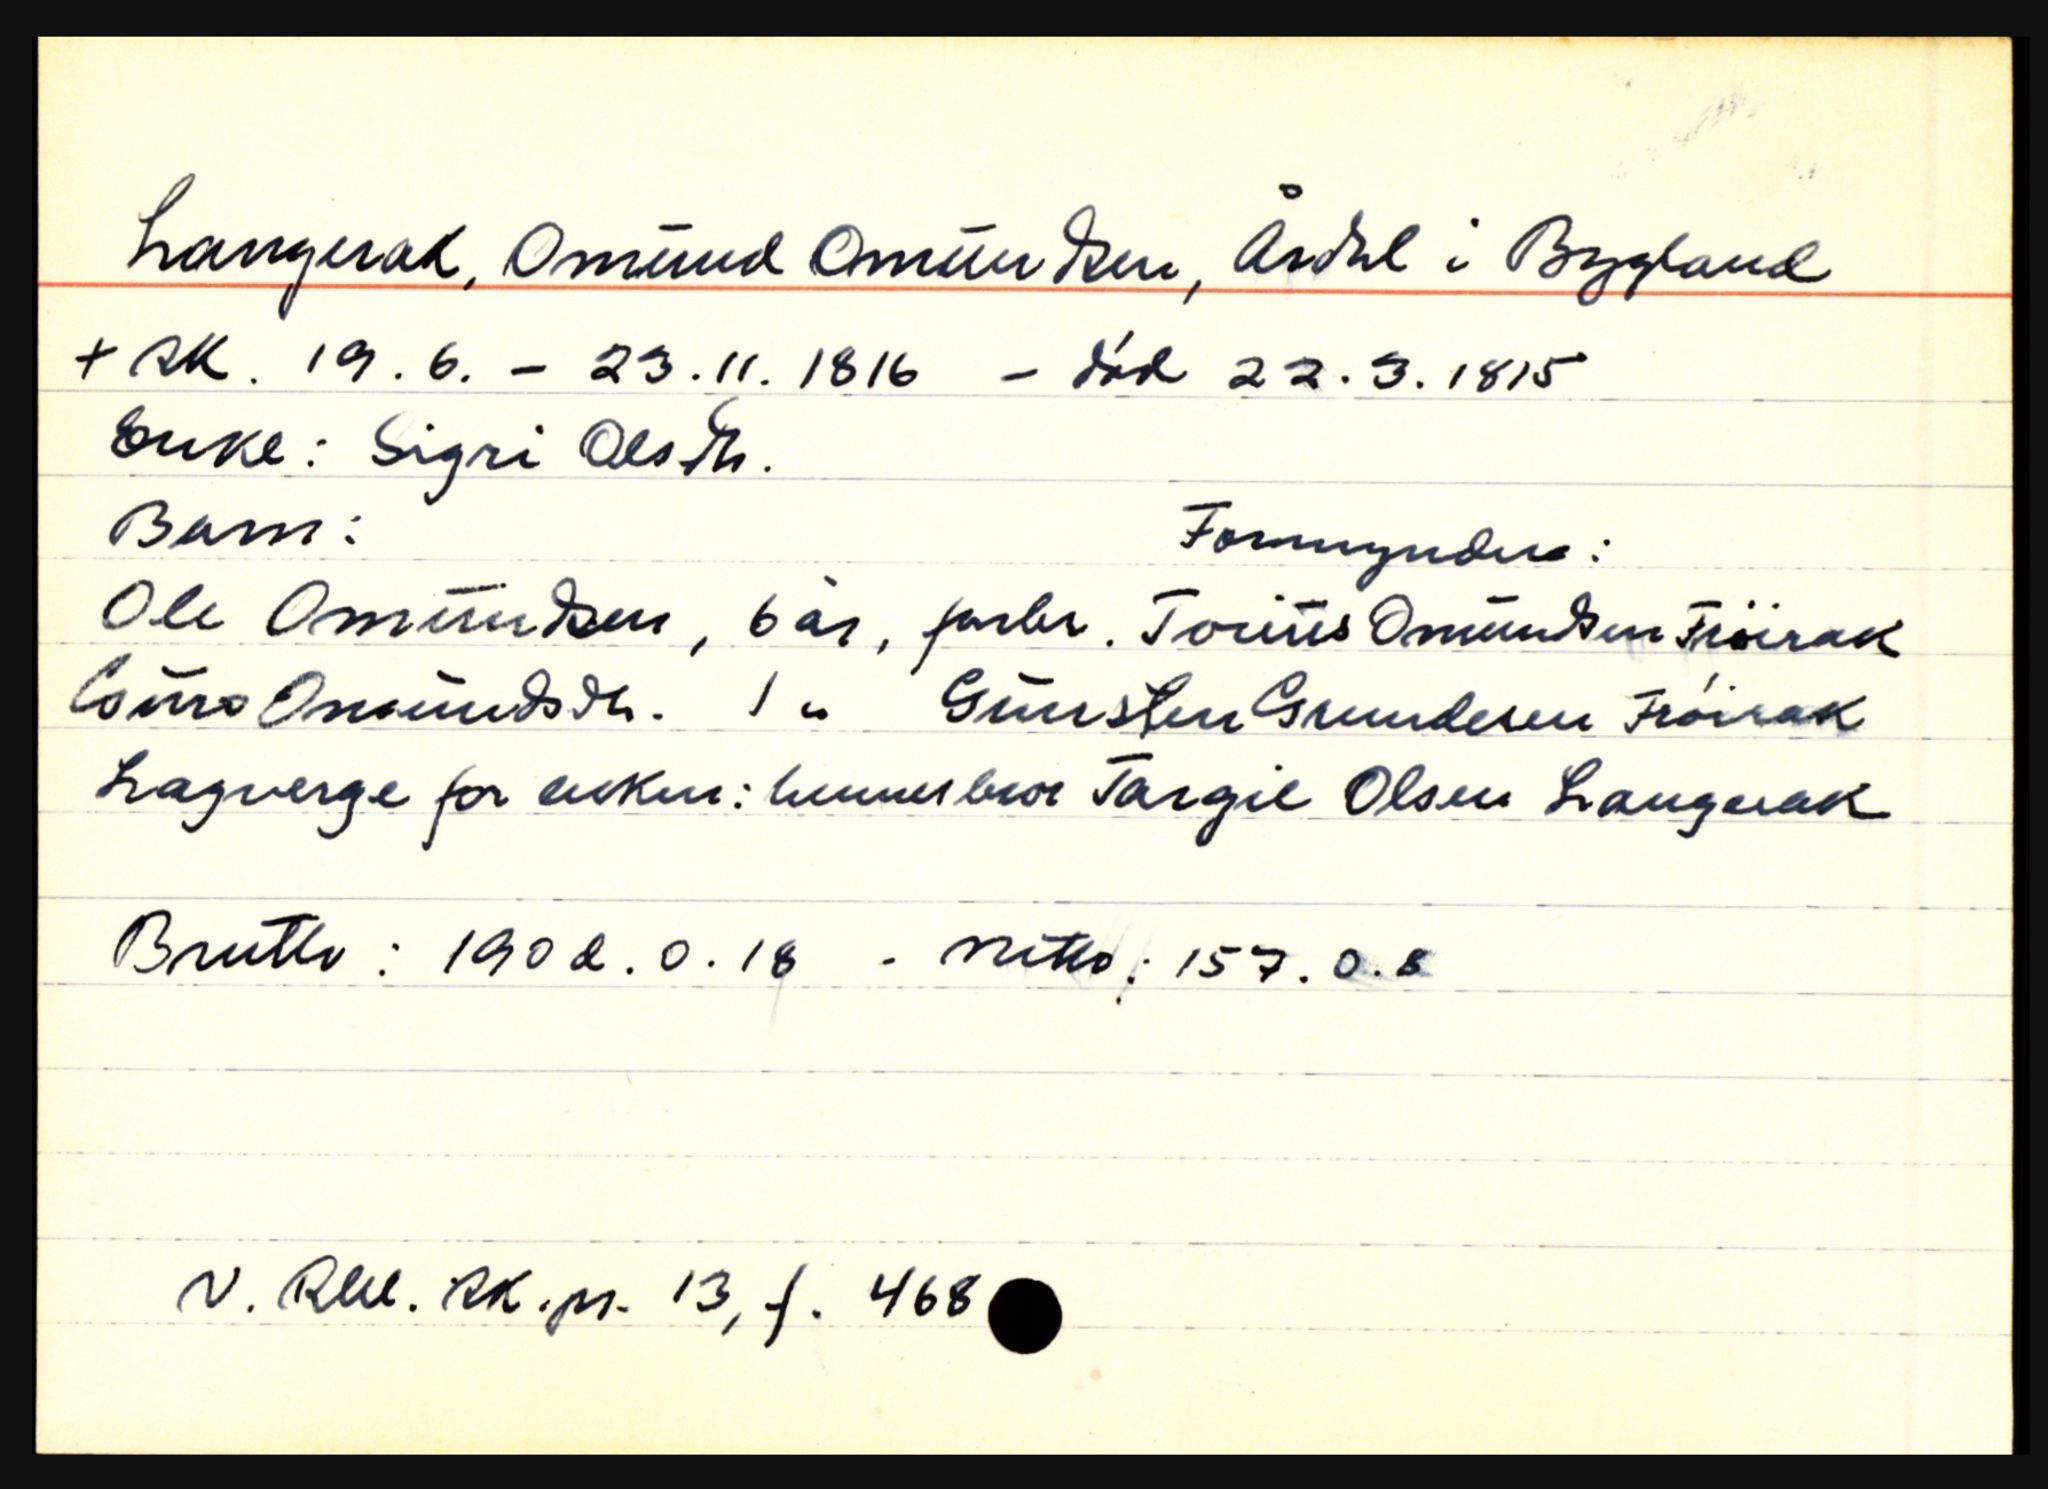 Langerak, Omund Omundsen, Årdal i Bygland
+ sk. 19.6. - 23.11.1816 - död 22.3.1815
Enke: Sigri Olsdtr.
Barn: Formyndere:
Ole Omundsen, 6 år, farbr. Toruus Omundsen Fröirak
Guro Omundsdtr. 1 " Gunsten Gundersen Fröirak
Lagverge for enken: hennes bror Targie Olsen Langerak
Brutto: 190 d. 0. 18 - netto: 157. 0. 8
V. Rbl. sk. pr. 13, f. 468